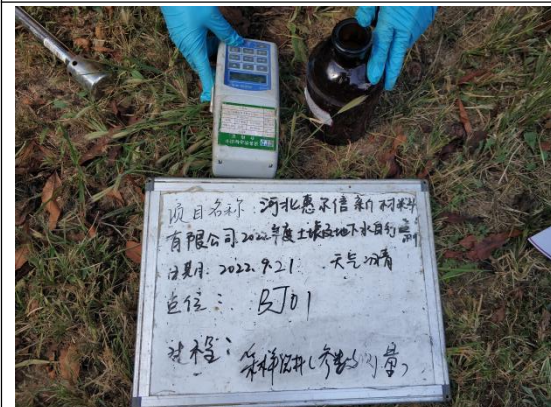 项目名称：河北惠尔信新材料
有限公司2022年度土壤及地下水自行监测
日期：2022.9.21 天气：晴
点位：BJ01
过程：采样洗井（参数测量）